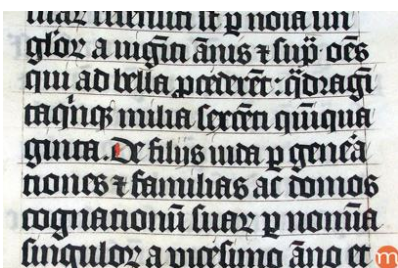 guloꝝ a uigĩti ãnis ⁊ sup̃. oẽs
qui ad bella ꝓcederẽt: q̃dragĩ
taqinqꝫ milia sexcẽti quĩqua
ginta. De filijs iuda p geneᷓa
tiones ⁊ familias ac domos
cognationũ suaꝝ p nomĩa
singuloꝝ a vicesimo ãno et
m